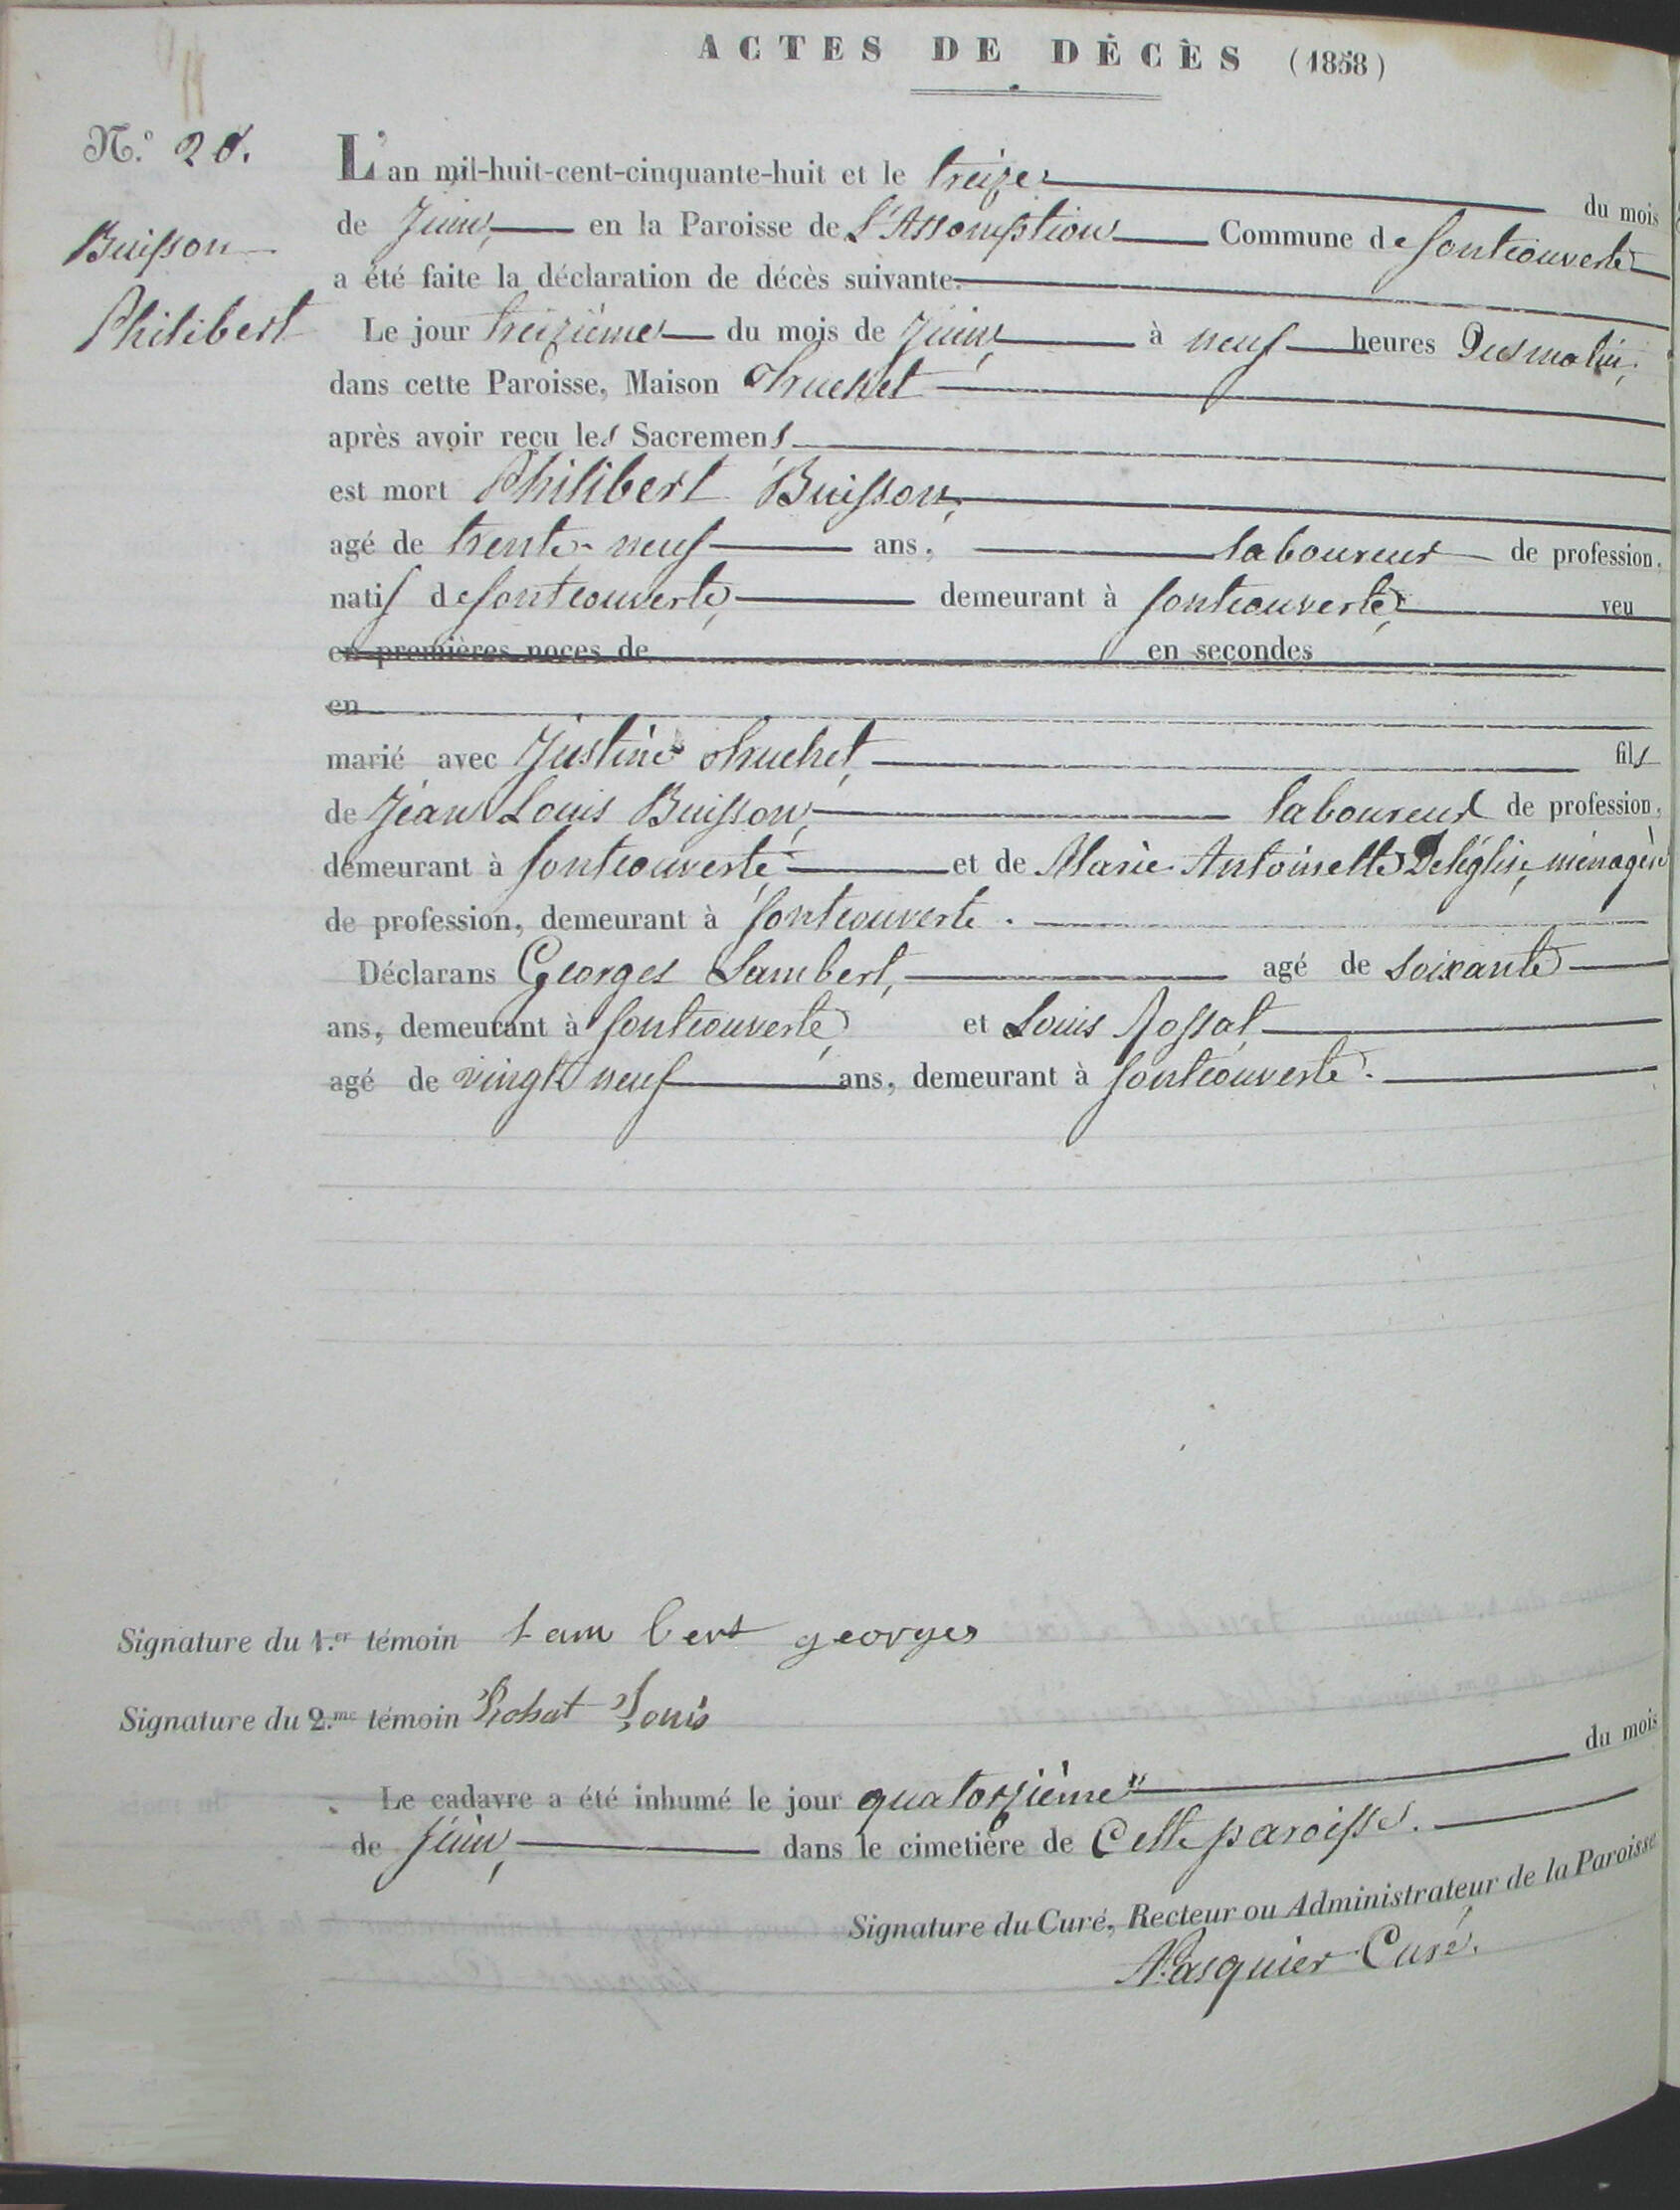 ACTES DE DÉCÈS (1858)
N.º 20.
Buisson
Philibert
L'an mil-huit-cent-cinquante-huit et le treize du mois
de Juin, en la Paroisse de L'Assomption Commune de fontcouverte
a été faite la déclaration de décès suivante.
Le jour treizième du mois de Juin, à neuf heures Du matin,
dans cette Paroisse, Maison Truchet
après avoir reçu les Sacremens
est mort Philibert Buisson,
agé de trente-neuf ans, laboureur de profession,
natif de fontcouverte, demeurant à fontcouverte, veu
en premières noces de en secondes
en
marié avec Justine Truchet, fils
de Jean Louis Buisson, laboureur de profession,
demeurant à fontcouverte et de Marie Antoinette Deléglise, ménagère
de profession, demeurant à fontcouverte.
Déclarans Georges Lambert, agé de soixante
ans, demeurant à fontcouverte, et Louis Rossat,
agé de vingt neuf ans, demeurant à fontcouverte.
Signature du 1.er témoin Lambert georges
Signature du 2.me témoin Louis
Le cadavre a été inhumé le jour quatorzième du mois
de Juin, dans le cimetière de Cette paroisse.
Signature du Curé, Recteur ou Administrateur de la Paroisse
Pasquier Curé.